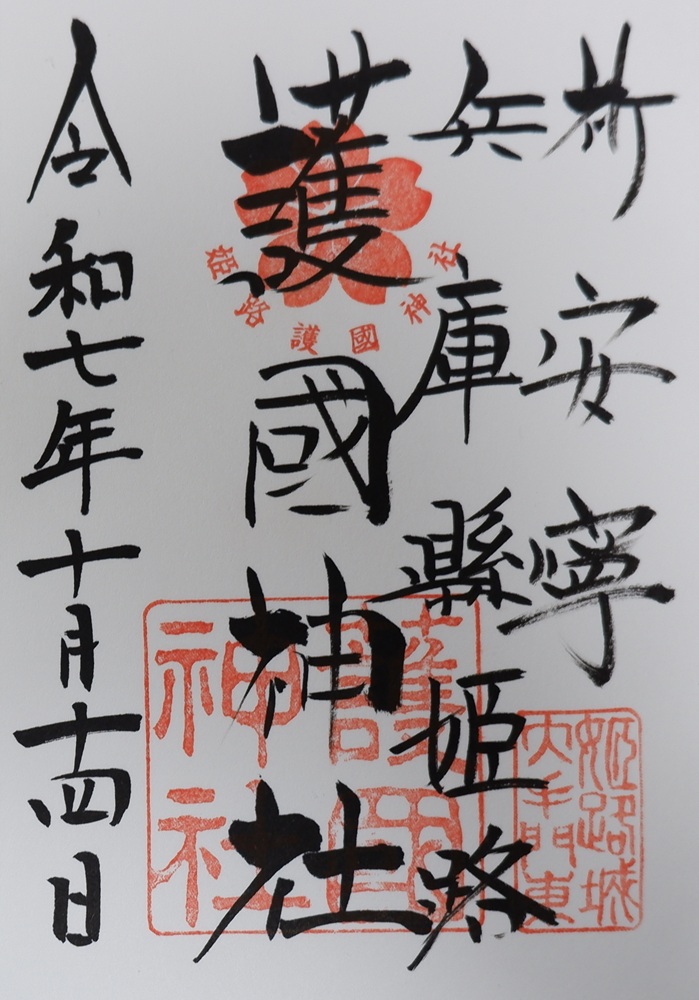 祈安寧
兵庫縣姫路
護國神社
令和七年十月十四日
姫路護國神社
護國神社
姫路城大手門東